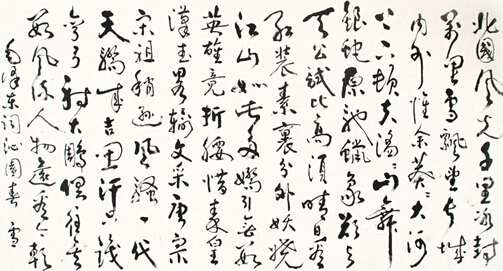 北國風光千里冰封
萬里雪飄望長城
内外惟余莽々大河
上下頓失滔々山舞
銀蛇原馳蠟象欲与
天公試比高須晴日看
紅裝素裹分外妖嬈
江山如此多嬌引無数
英雄竞折腰惜秦皇
漢武畧輸文采唐宗
宋祖稍遜風騷一代
天驕成吉思汗只識
彎弓射大鵰俱往矣
数風流人物還看今朝
毛澤東詞沁園春 雪